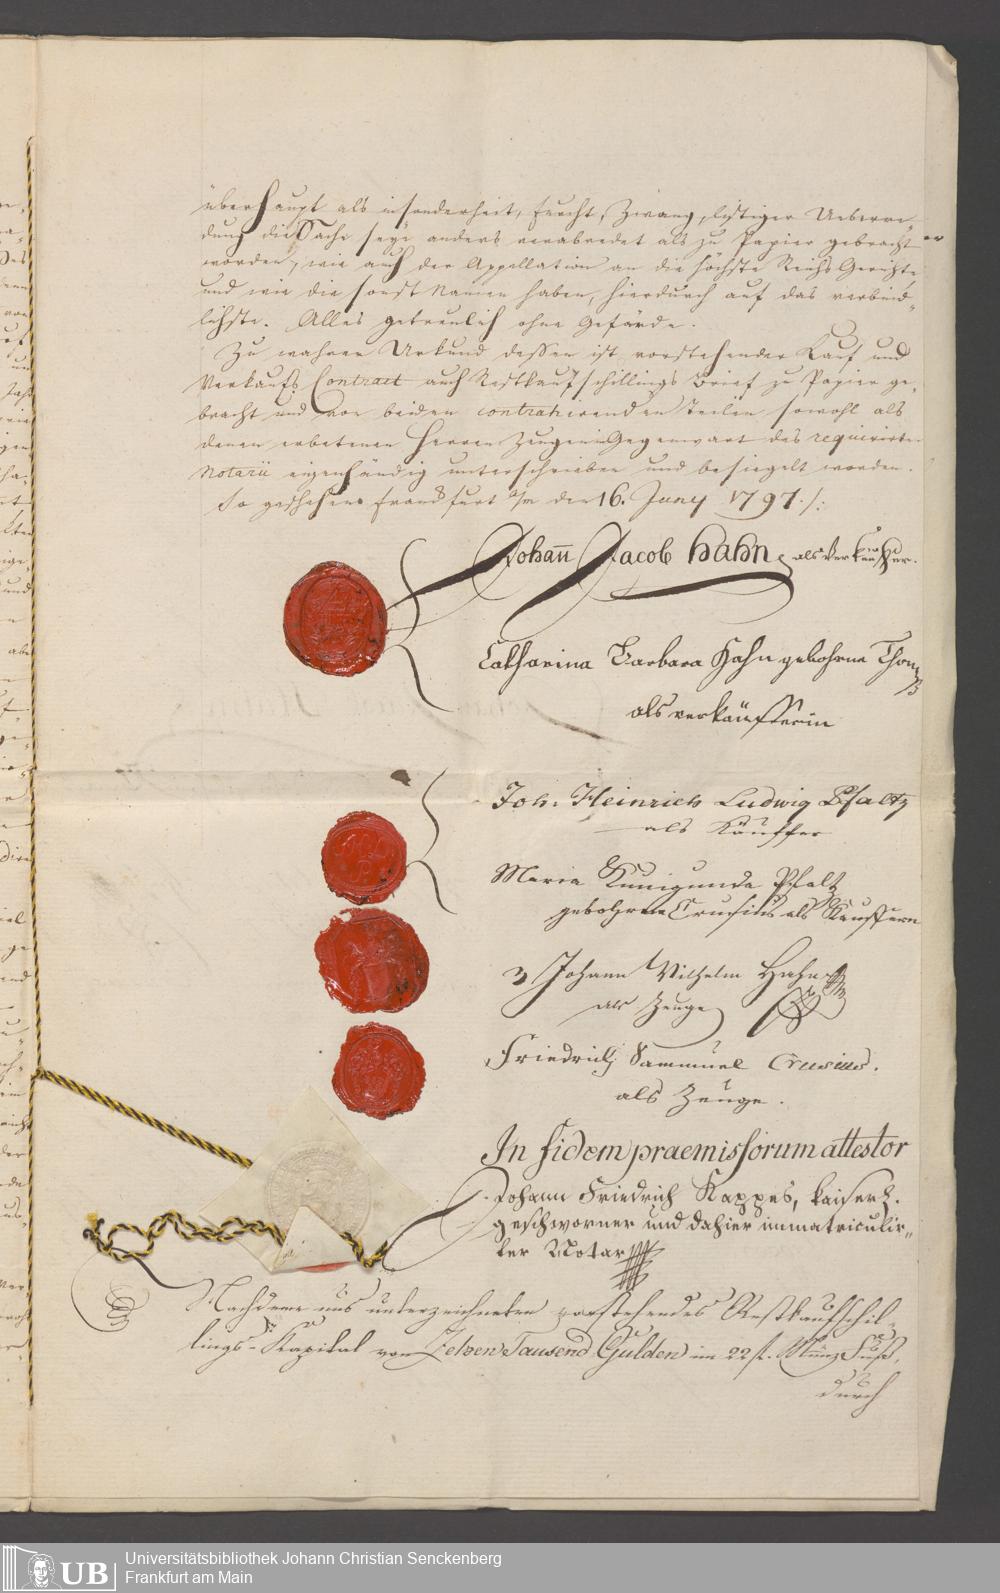 überhaupt als insonderheit, Furcht, Zwang, listiger Ueberre-
dung die Sache seye anders verabredet als zu Papier gebracht
worden, wie auch der Appellation an die höchste Reichs Gerichte
und wie die sonst Namen haben, hierdurch auf das verbind-
lichste. Alles getreulich ohne Gefärde.
Zu wahrer Urkund dessen ist vorstehender Kauf und
Verkaufs Contract auch Restkaufschillings Brief zu Papier ge-
bracht und von beiden contrahirenden Teilen sowohl als
denen erbetenen Herren Zeugen in Gegenwart des requirirten
Notarii eigenhändig unterschrieben und besiegelt worden.
So geschehen Frankfurt a/m den 16. Juny 1797. /:
Johann Jacob Hahn, als Verkäuffer.
Catharina Barbara Hahn gebohrne Thomß
als verkäufferin
Joh. Heinrich Ludwig Pfaltz
als Käuffer
Maria Kunigunda Pfaltz
gebohrne Crusius als Käuffern
Johann Wilhelm Hahn
als Zeuge
Friedrich Sammuel Crusius.
als Zeuge.
In fidem praemissorum attestor
Johann Friedrich Kappes, kaiserl.
geschworner und dahier immatriculir„
ter Notar
Nachdeme uns unterzeichneten vorstehendes Restkaufschil-
lings-Kapital von Zehen Tausend Gulden im 22 f. Münz Fuß,
durch
Universitätsbibliothek Johann Christian Senckenberg
Frankfurt am Main
UB